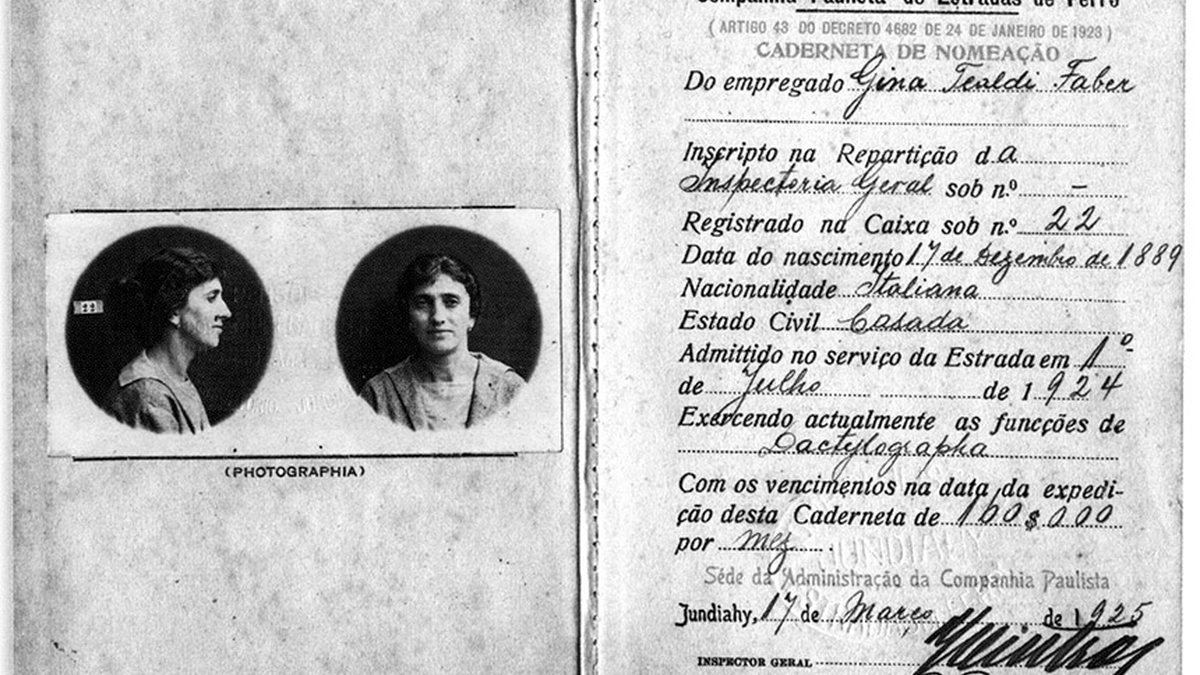 Companhia Paulista de Estradas de Ferro
( ARTIGO 43 DO DECRETO 4682 DE 24 DE JANEIRO DE 1923 )
CADERNETA DE NOMEAÇÃO
Do empregado Gina Tealdi Faber
Inscripto na Repartição da
Inspectoria Geral sob n.º -
Registrado na Caixa sob n.º 22
Data do nascimento 17 de Dezembro de 1889
Nacionalidade Italiana
Estado Civil Casada
Admittido no serviço da Estrada em 1º
de Julho de 1924
Exercendo actualmente as funcções de
Dactylographa
Com os vencimentos na data da expedi-
ção desta Caderneta de 160$000
por mez
Séde da Administração da Companhia Paulista
Jundiahy, 17 de Março de 1925
INSPECTOR GERAL
22
(PHOTOGRAPHIA)